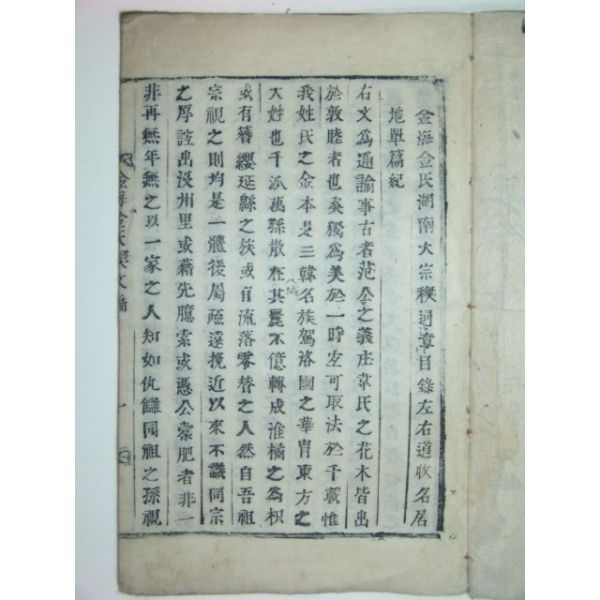 金海金氏湖南大宗稧通章目錄左右道收名居
地單篇紀
右文爲通諭事古者范公之義庄韋氏之花木皆出
於敦睦者也奚獨爲美於一時左可取法於千載惟
我姓氏之金本是三韓名族駕洛國之華胄東方之
大姓也千派萬孫散在其麗不億轉成淮橘之爲枳
或有簪纓延緜之族或有流落零替之人然自吾祖
宗視之則均是一體後屬疎遠挽近以來不識同宗
之厚誼出沒州里或藉先臆索或憑公彙肥者非一
非再無年無之以一家之人知如仇讎同祖之孫視
金海金氏稧文
一